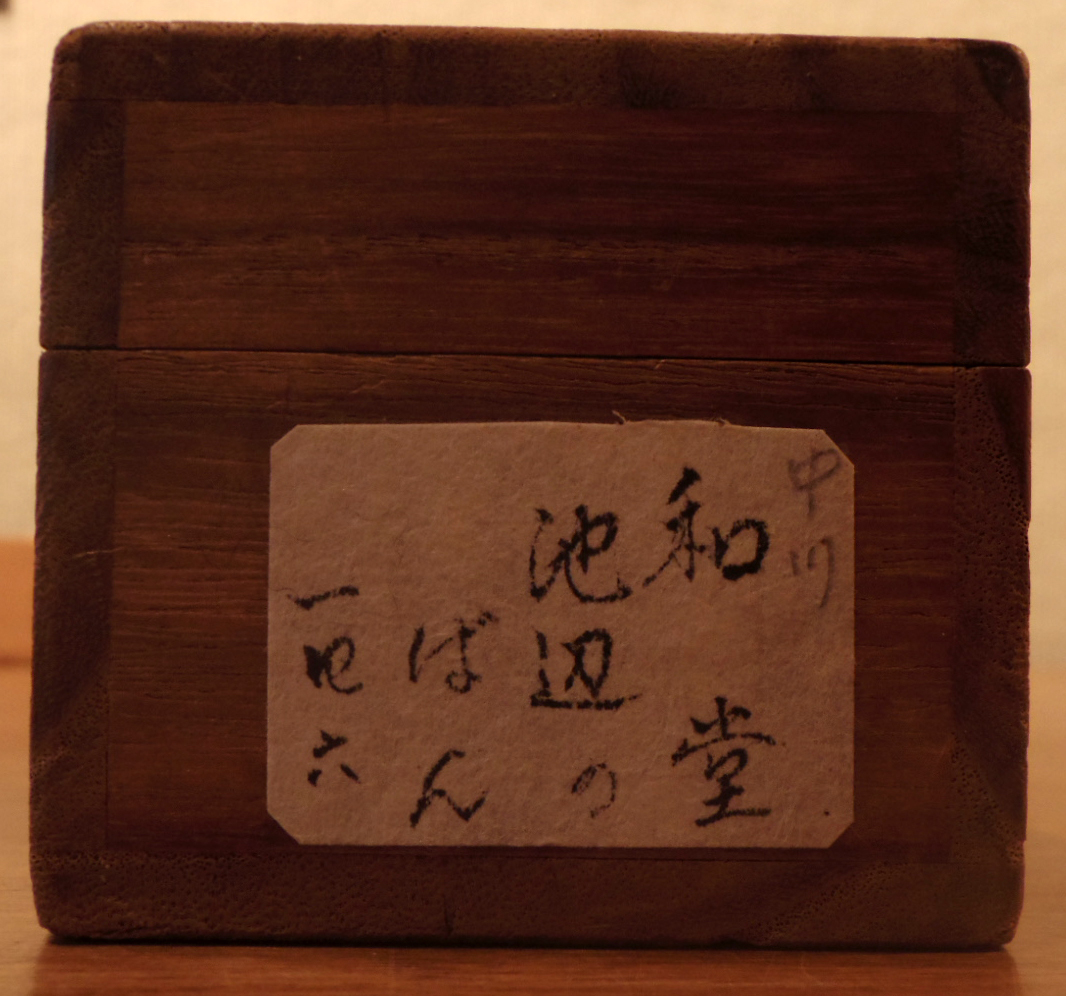 中川
和堂
池辺の
ばん
一四六